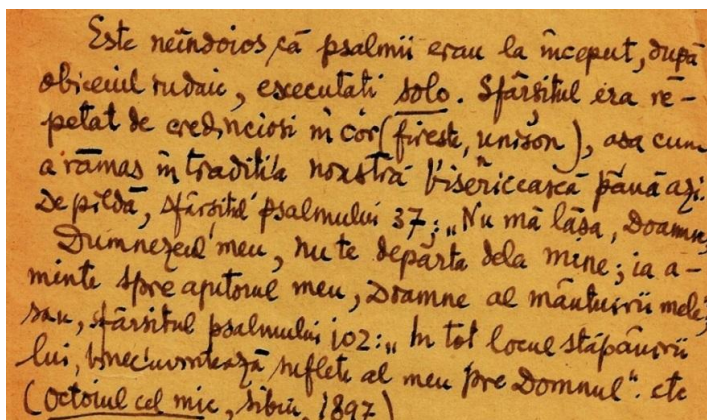 Este neîndoios, că psalmii erau la început, după
obiceiul iudaic, executati solo. Sfârşitul era re-
petat de credincioşi în cor (fireşte, unison), aşa cum
a rămas în traditia noastră bisericească până azi.
De pildă, sfârşitul psalmului 37: „Nu mă lăsa, Doamne,
Dumnezeul meu, nu te depărta dela mine; ia a-
minte spre ajutorul meu, Doamne al mântuirii mele",
sau, sfârşitul psalmului 102: „În tot locul stăpânirii
lui, binecuvintează suflete al meu pre Domnul". etc
(Octoiul cel mic, Sibiu, 1897)